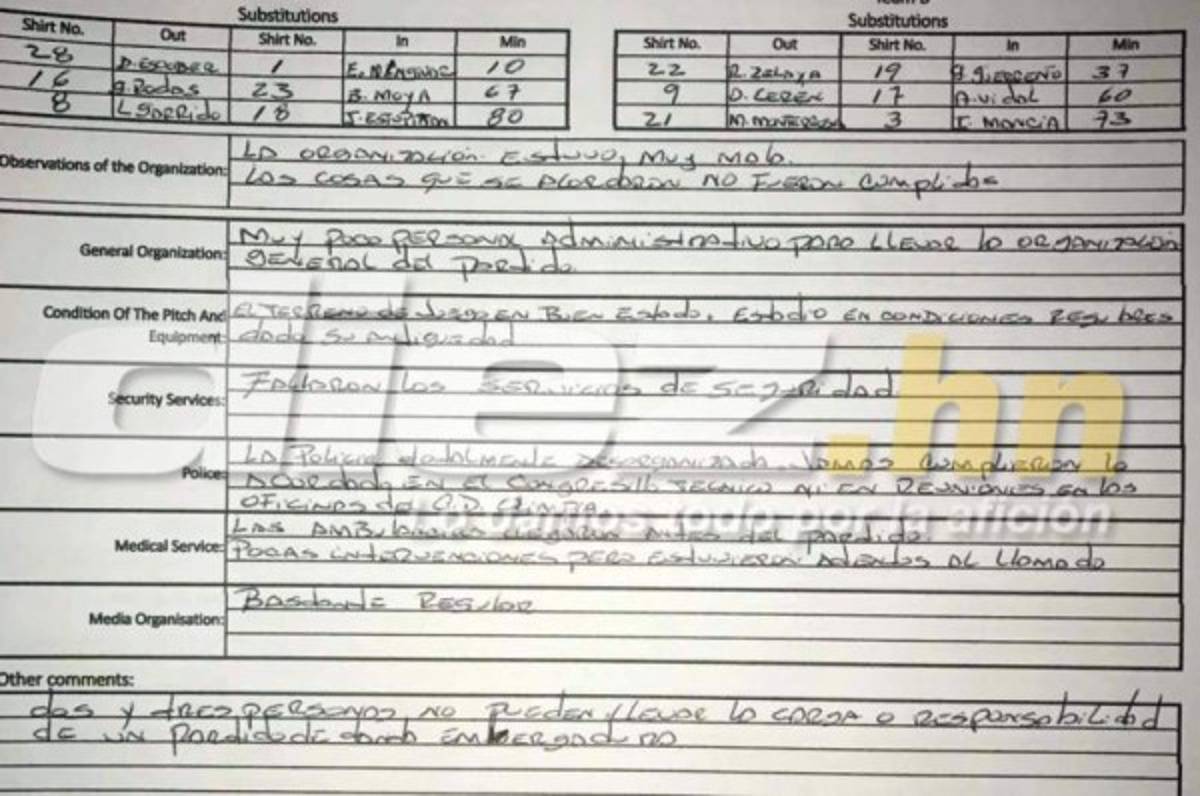 Substitutions
Shirt No. Out Shirt No. In Min
28 D. ESCOBER 1 10
16 Rodas 23 B. MOYA 67
8 L. GARRIDO 18 80
Substitutions
Shirt No. Out Shirt No. In Min
22 R. ZELAYA 19 37
9 D. CEREN 17 A. VIDAL 60
21 3 I. MANCIA 73
Observations of the Organization:
LA ORGANIZACION ESTUVO, MUY MAL.
LAS COSAS QUE SE ACORDARON NO FUERON CUMPLIDAS
General Organization:
MUY POCO PERSONAL ADMINISTRATIVO PARA LLEVAR LA ORGANIZACION
GENERAL DEL PARTIDO
Condition Of The Pitch And
Equipment:
EL TERRENO DE JUEGO EN BUEN ESTADO. ESTADIO EN CONDICIONES REGULARES
DADA SU ANTIGUEDAD
Security Services:
FALLARON LOS SERVICIOS DE SEGURIDAD
Police:
LA POLICIA TOTALMENTE DESORGANIZADA. JAMAS CUMPLIERON LO
ACORDADO EN EL CONGRESILLO TECNICO NI EN REUNIONES EN LAS
OFICINAS DEL C.D. OLIMPIA
Medical Service:
LAS AMBULANCIAS LLEGARON ANTES DEL PARTIDO.
POCAS INTERVENCIONES PERO ESTUVIERON ATENTOS AL LLAMADO
Media Organisation:
BASTANTE REGULAR
Other comments:
DOS Y TRES PERSONAS NO PUEDEN LLEVAR LA CARGA O RESPONSABILIDAD
DE UN PARTIDO DE TANTA EMBERGADURA
diez.hn
todo por la afición